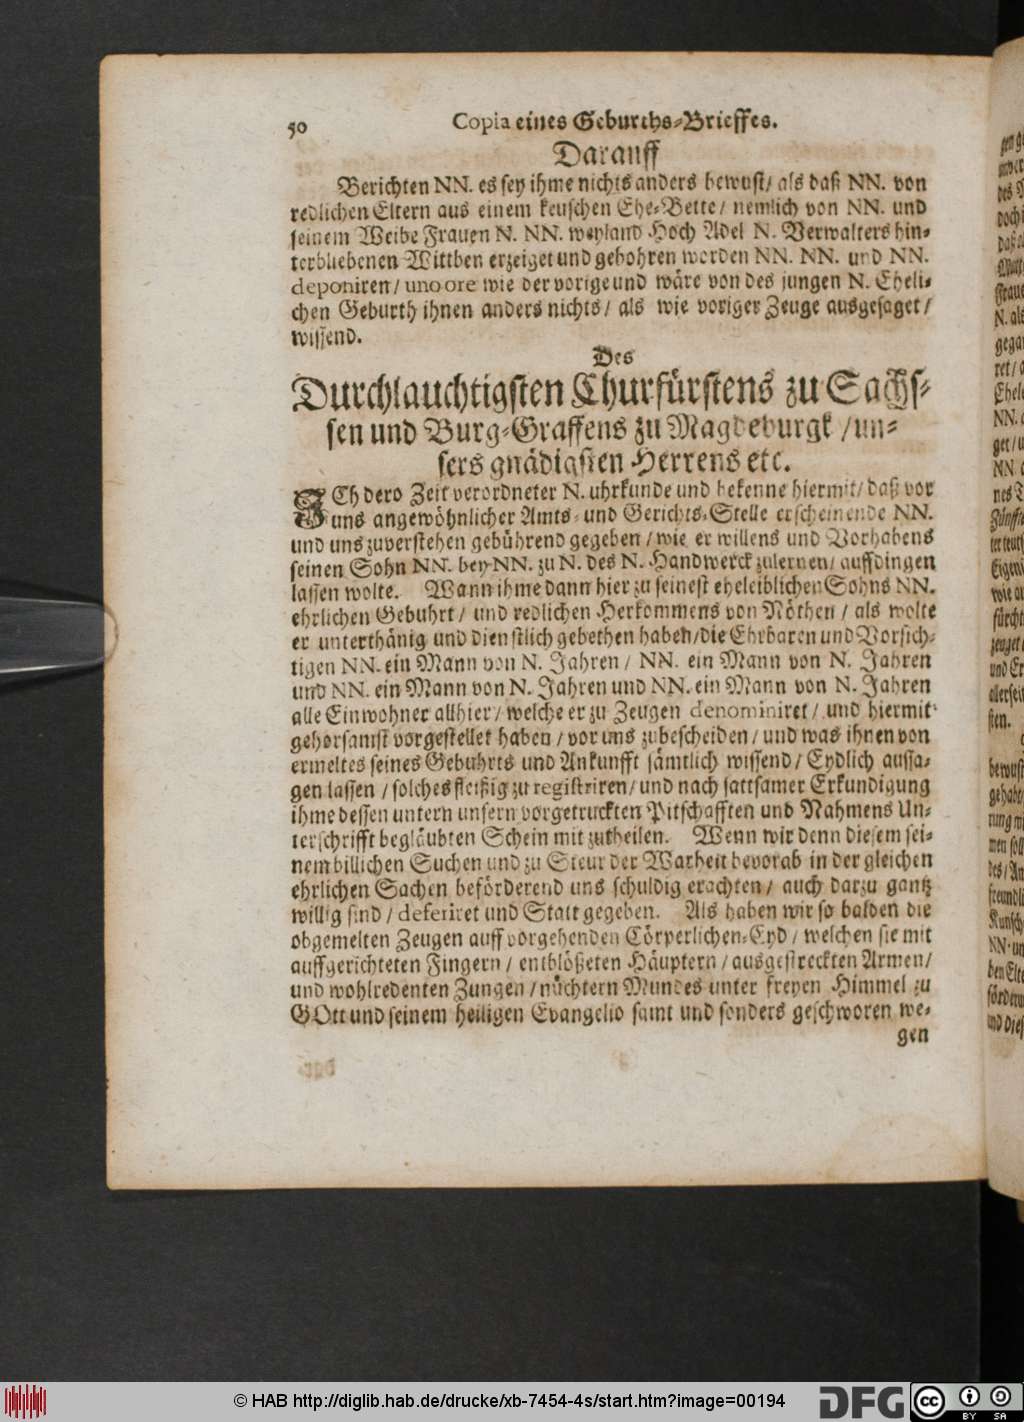 50 Copia eines Geburths-Brieffes.
Darauff
Berichten NN. es sey ihme nichts anders bewust/ als daß NN. von
redlichen Eltern aus einem keuschen Ehe-Bette/ nemlich von NN. und
seinem Weibe Frauen N. NN. weyland Hoch Adel N. Verwalters hin-
terbliebenen Wittben erzeiget und gebohren worden NN. NN. und NN.
deponiren/ uno ore wie der vorige und wäre von des jungen N. Eheli-
chen Geburth ihnen anders nichts/ als wie voriger Zeuge ausgesaget/
wissend.
Des
Durchlauchtigsten Churfürstens zu Sachs-
sen und Burg-Graffens zu Magdeburgk/un-
sers gnädigsten Herrens etc.
ICh dero Zeit verordneter N. uhrkunde und bekenne hiermit/ daß vor
uns angewöhnlicher Amts- und Gerichts-Stelle erscheinende NN.
und uns zuverstehen gebührend gegeben/ wie er willens und Vorhabens
seinen Sohn NN. bey NN. zu N. des N. Handwerck zulernen/ auffdingen
lassen wolte. Wann ihme dann hier zu seinest eheleiblichen Sohns NN.
ehrlichen Gebuhrt/ und redlichen Herkommens von Nöthen/ als wolte
er unterthänig und dienstlich gebethen haben/die Ehrbaren und Vorsich-
tigen NN. ein Mann von N. Jahren/ NN. ein Mann von N. Jahren
und NN. ein Mann von N. Jahren und NN. ein Mann von N. Jahren
alle Einwohner allhier/ welche er zu Zeugen denominiret/ und hiermit
gehorsamst vorgestellet haben/ vor uns zubescheiden/ und was ihnen von
ermeltes seines Gebuhrts und Ankunfft sämtlich wissend/ Eydlich aussa-
gen lassen/ solches fleißig zu registriren/ und nach sattsamer Erkundigung
ihme dessen untern unsern vorgetruckten Pitschafften und Nahmens Un-
terschrifft begläubten Schein mit zutheilen. Wenn wir denn diesem sei-
nem billichen Suchen und zu Steur der Warheit bevorab in der gleichen
ehrlichen Sachen beförderend uns schuldig erachten/ auch darzu gantz
willig sind/ deferiret und Statt gegeben. Als haben wir so balden die
obgemelten Zeugen auff vorgehenden Cörperlichen-Eyd/ welchen sie mit
auffgerichteten Fingern/ entblößeten Häuptern/ ausgestreckten Armen/
und wohlredenten Zungen/ nüchtern Mundes unter freyen Himmel zu
GOtt und seinem heiligen Evangelio samt und sonders geschworen we-
gen
© HAB http://diglib.hab.de/drucke/xb-7454-4s/start.htm?image=00194
DFG
cc BY SA